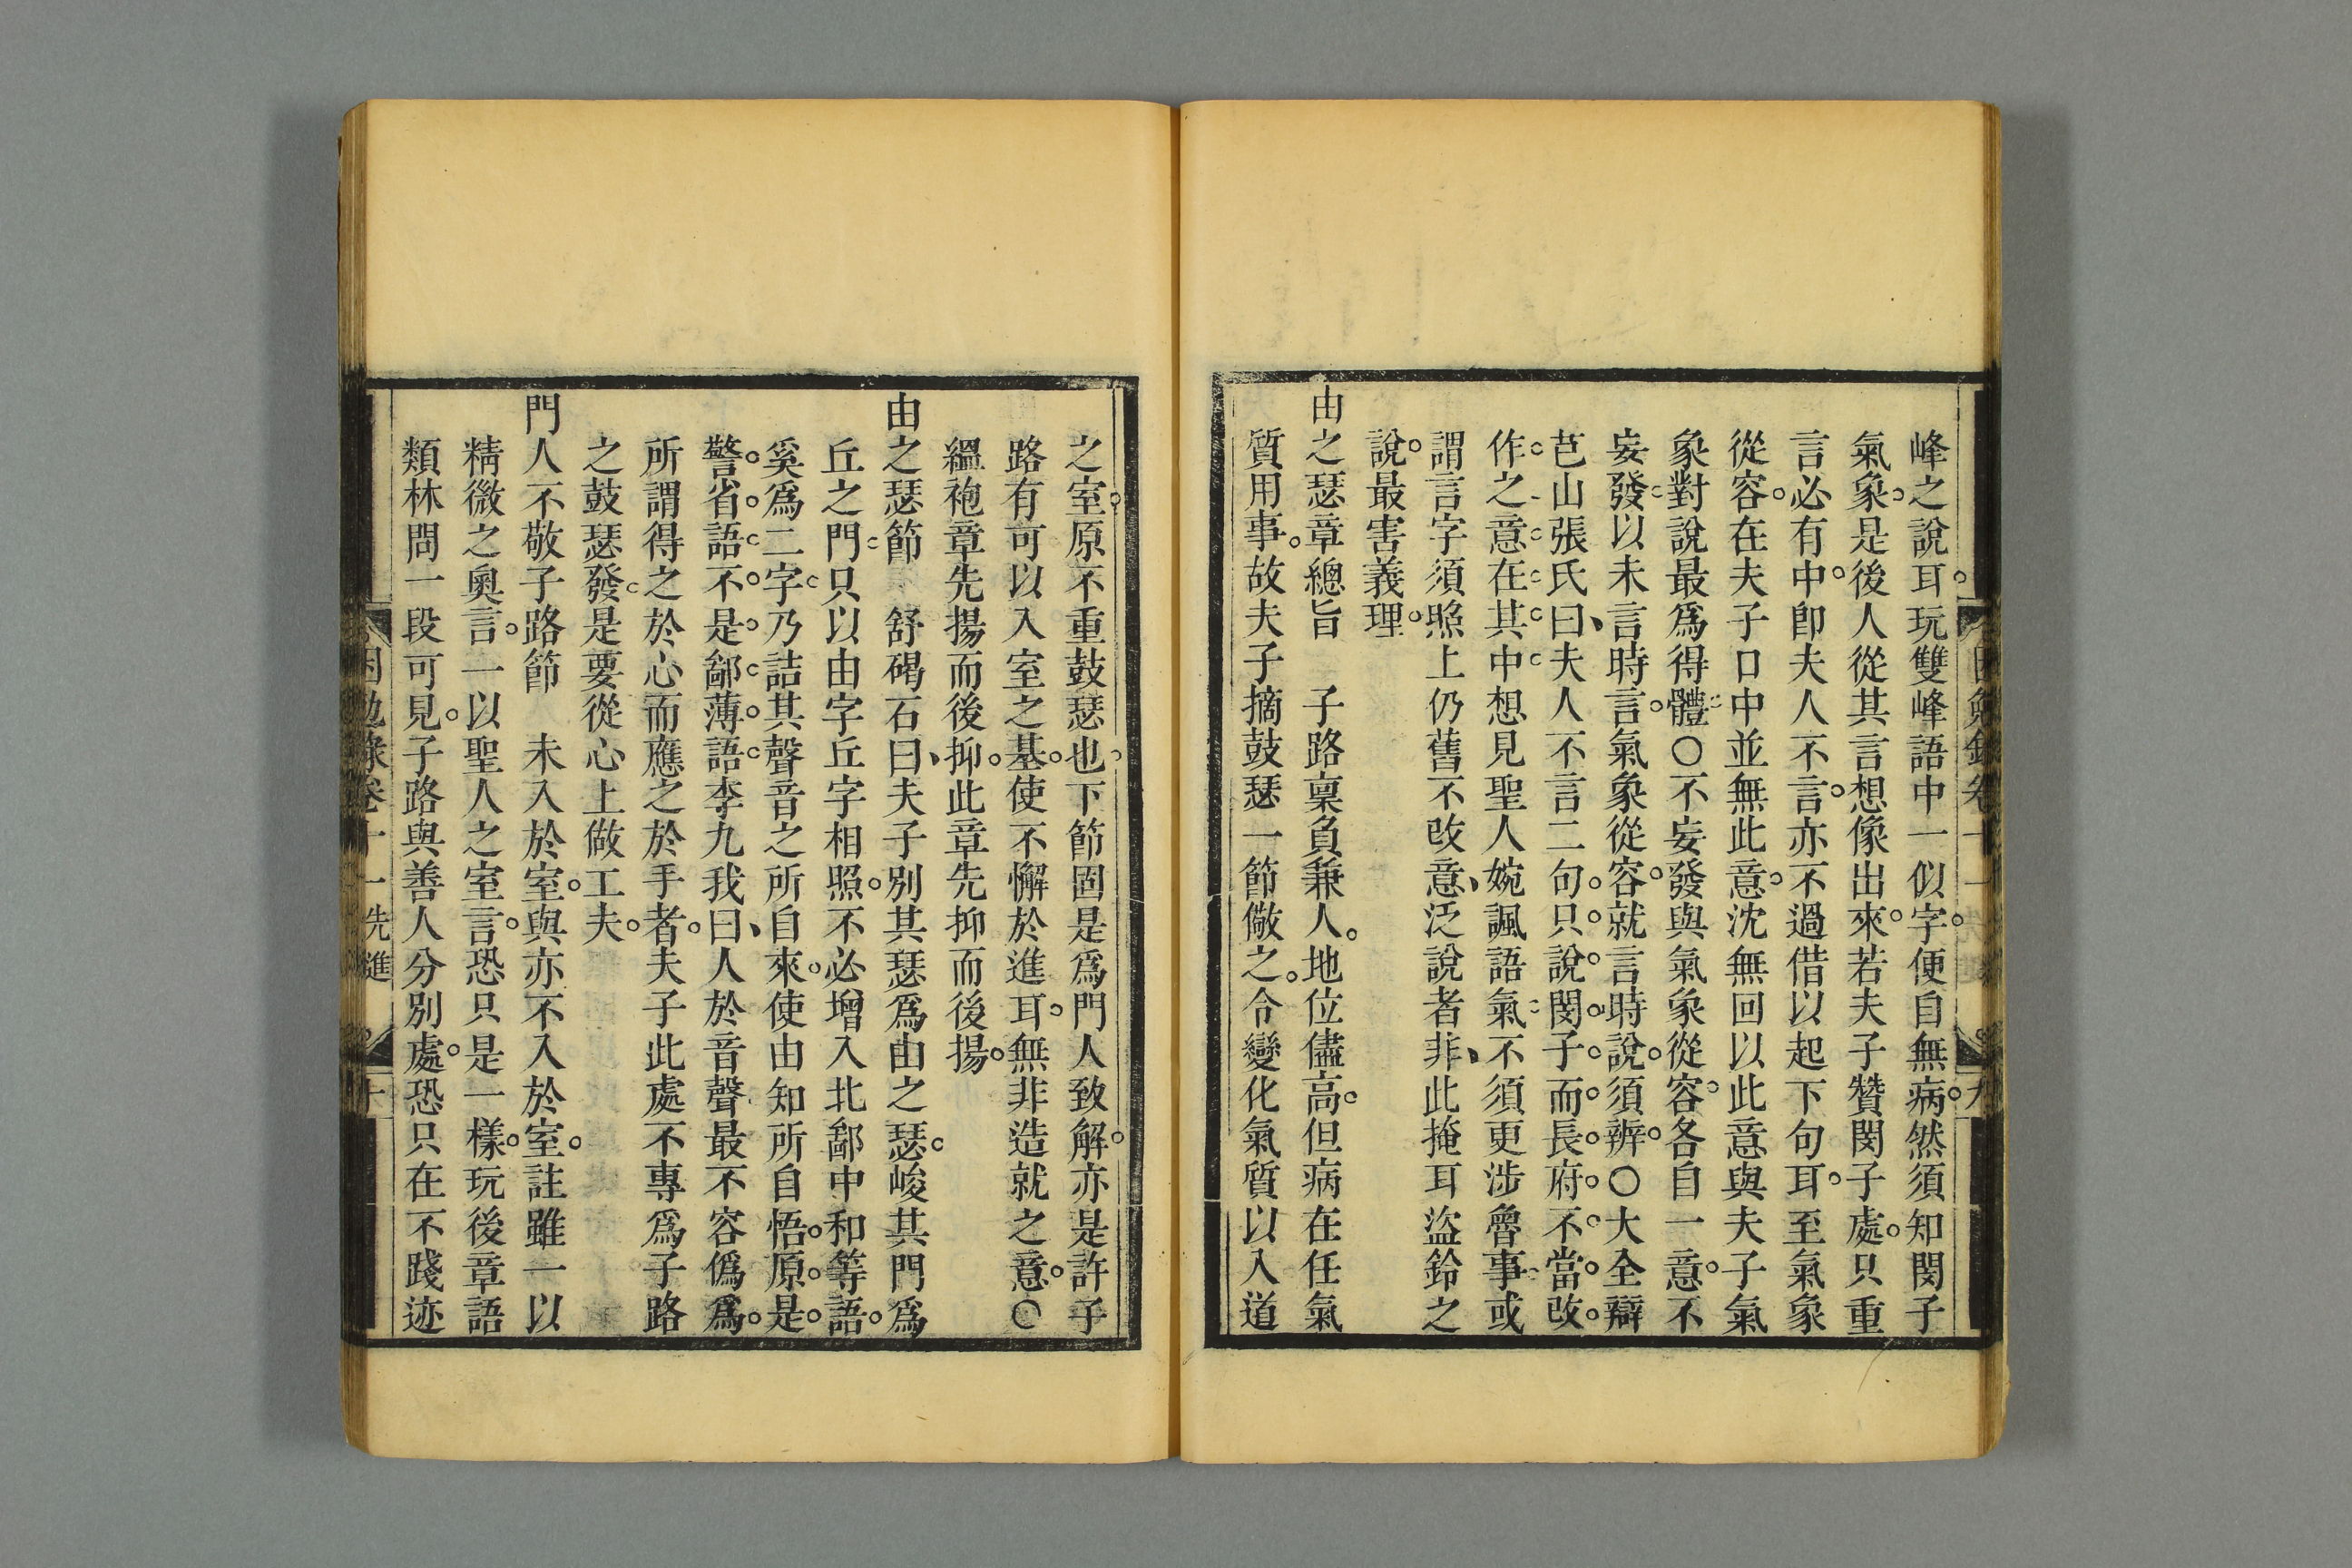 峰之說耳玩雙峰語中一似字便自無病然須知閔子
氣象是後人從其言想像出來若夫子贊閔子處只重
言必有中卽夫人不言亦不過借以起下句耳至氣象
從容在夫子口中並無此意沈無回以此意與夫子氣
象對說最爲得體〇不妄發與氣象從容各自一意不
妄發以未言時言氣象從容就言時說須辨〇大全辯
芑山張氏曰夫人不言二句只說閔子而長府不當改
作之意在其中想見聖人婉諷語氣不須更涉魯事或
謂言字須照上仍舊不改意泛說者非此掩耳盜鈴之
說最害義理
由之瑟章總旨 子路稟負兼人地位儘高但病在任氣
質用事故夫子摘鼓瑟一節儆之令變化氣質以入道
之室原不重鼓瑟也下節固是爲門人致解亦是許子
路有可以入室之基使不懈於進耳無非造就之意〇
縕袍章先揚而後抑此章先抑而後揚
由之瑟節 舒碣石曰夫子別其瑟爲由之瑟峻其門爲
丘之門只以由字丘字相照不必增入北鄙中和等語
奚爲二字乃詰其聲音之所自來使由知所自悟原是
警省語不是鄙薄語李九我曰人於音聲最不容僞爲
所謂得之於心而應之於手者夫子此處不專爲子路
之鼓瑟發是要從心上做工夫
門人不敬子路節 未入於室與亦不入於室註雖一以
精微之奧言一以聖人之室言恐只是一樣玩後章語
類林問一段可見子路與善人分別處恐只在不踐迹
困勉錄卷十一先進 十